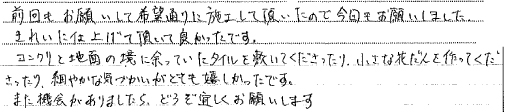 前回もお願いして希望通りに施工して頂いたので今回もお願いしました。
きれいに仕上げて頂いて良かったです。
コンクリと地面の境に余っていたタイルを敷いてくださったり、小さな花だんを作ってくだ
さったり、細やかな気づかいがとても嬉しかったです。
また機会がありましたら、どうぞ宜しくお願いします